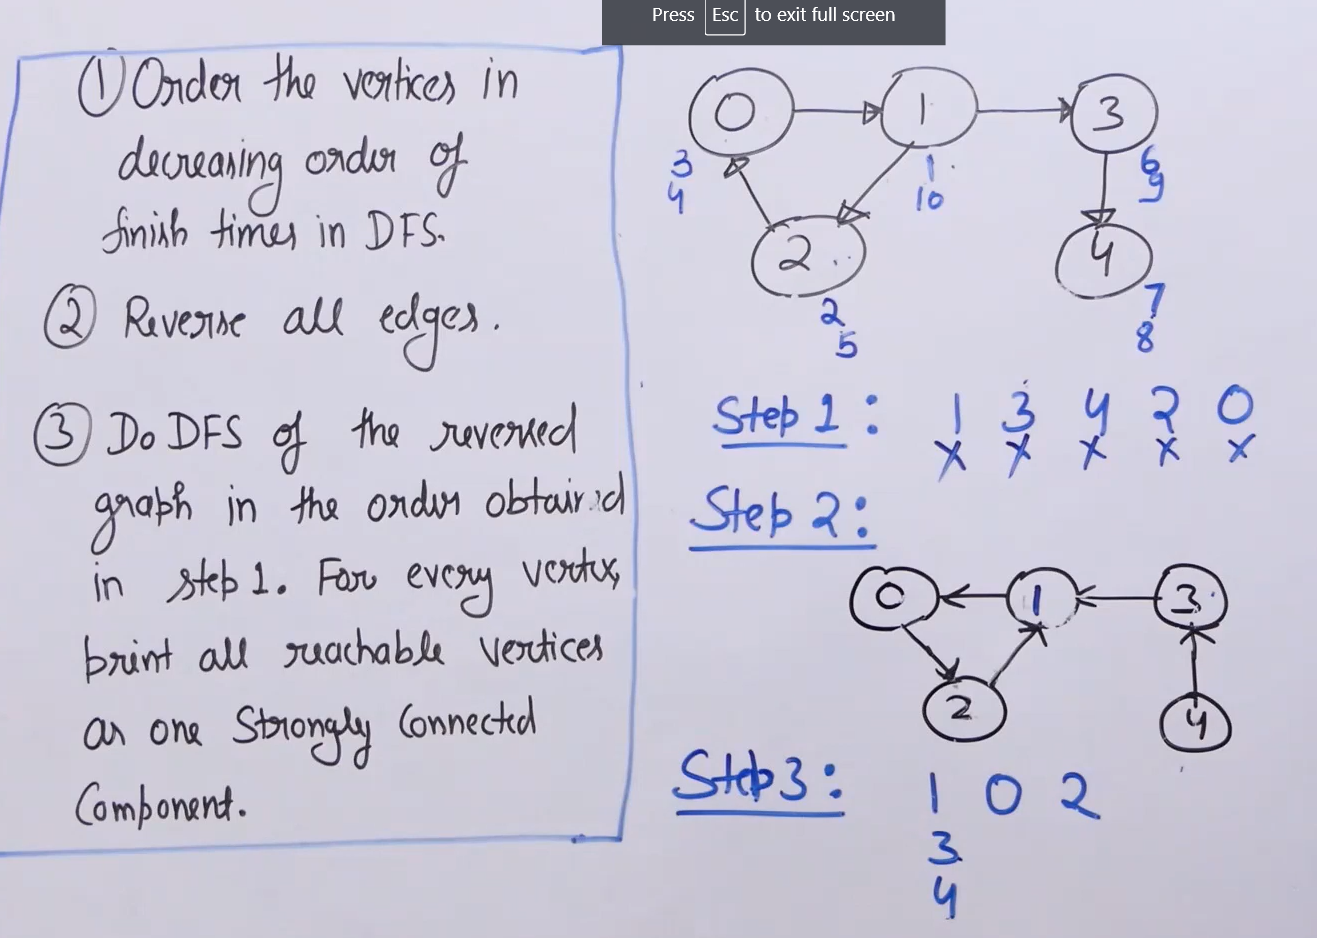 Press Esc to exit full screen
① Order the vertices in
decreasing order of
finish times in DFS.
② Reverse all edges.
③ Do DFS of the reversed
graph in the order obtained
in step 1. For every vertex,
print all reachable vertices
as one Strongly Connected
Component.
0 1 3
3 1 6
4 10 9
2 4
2 7
5 8
Step 1: 1 3 4 2 0
x x x x x
Step 2:
0 1 3
2 4
Step 3: 1 0 2
3
4